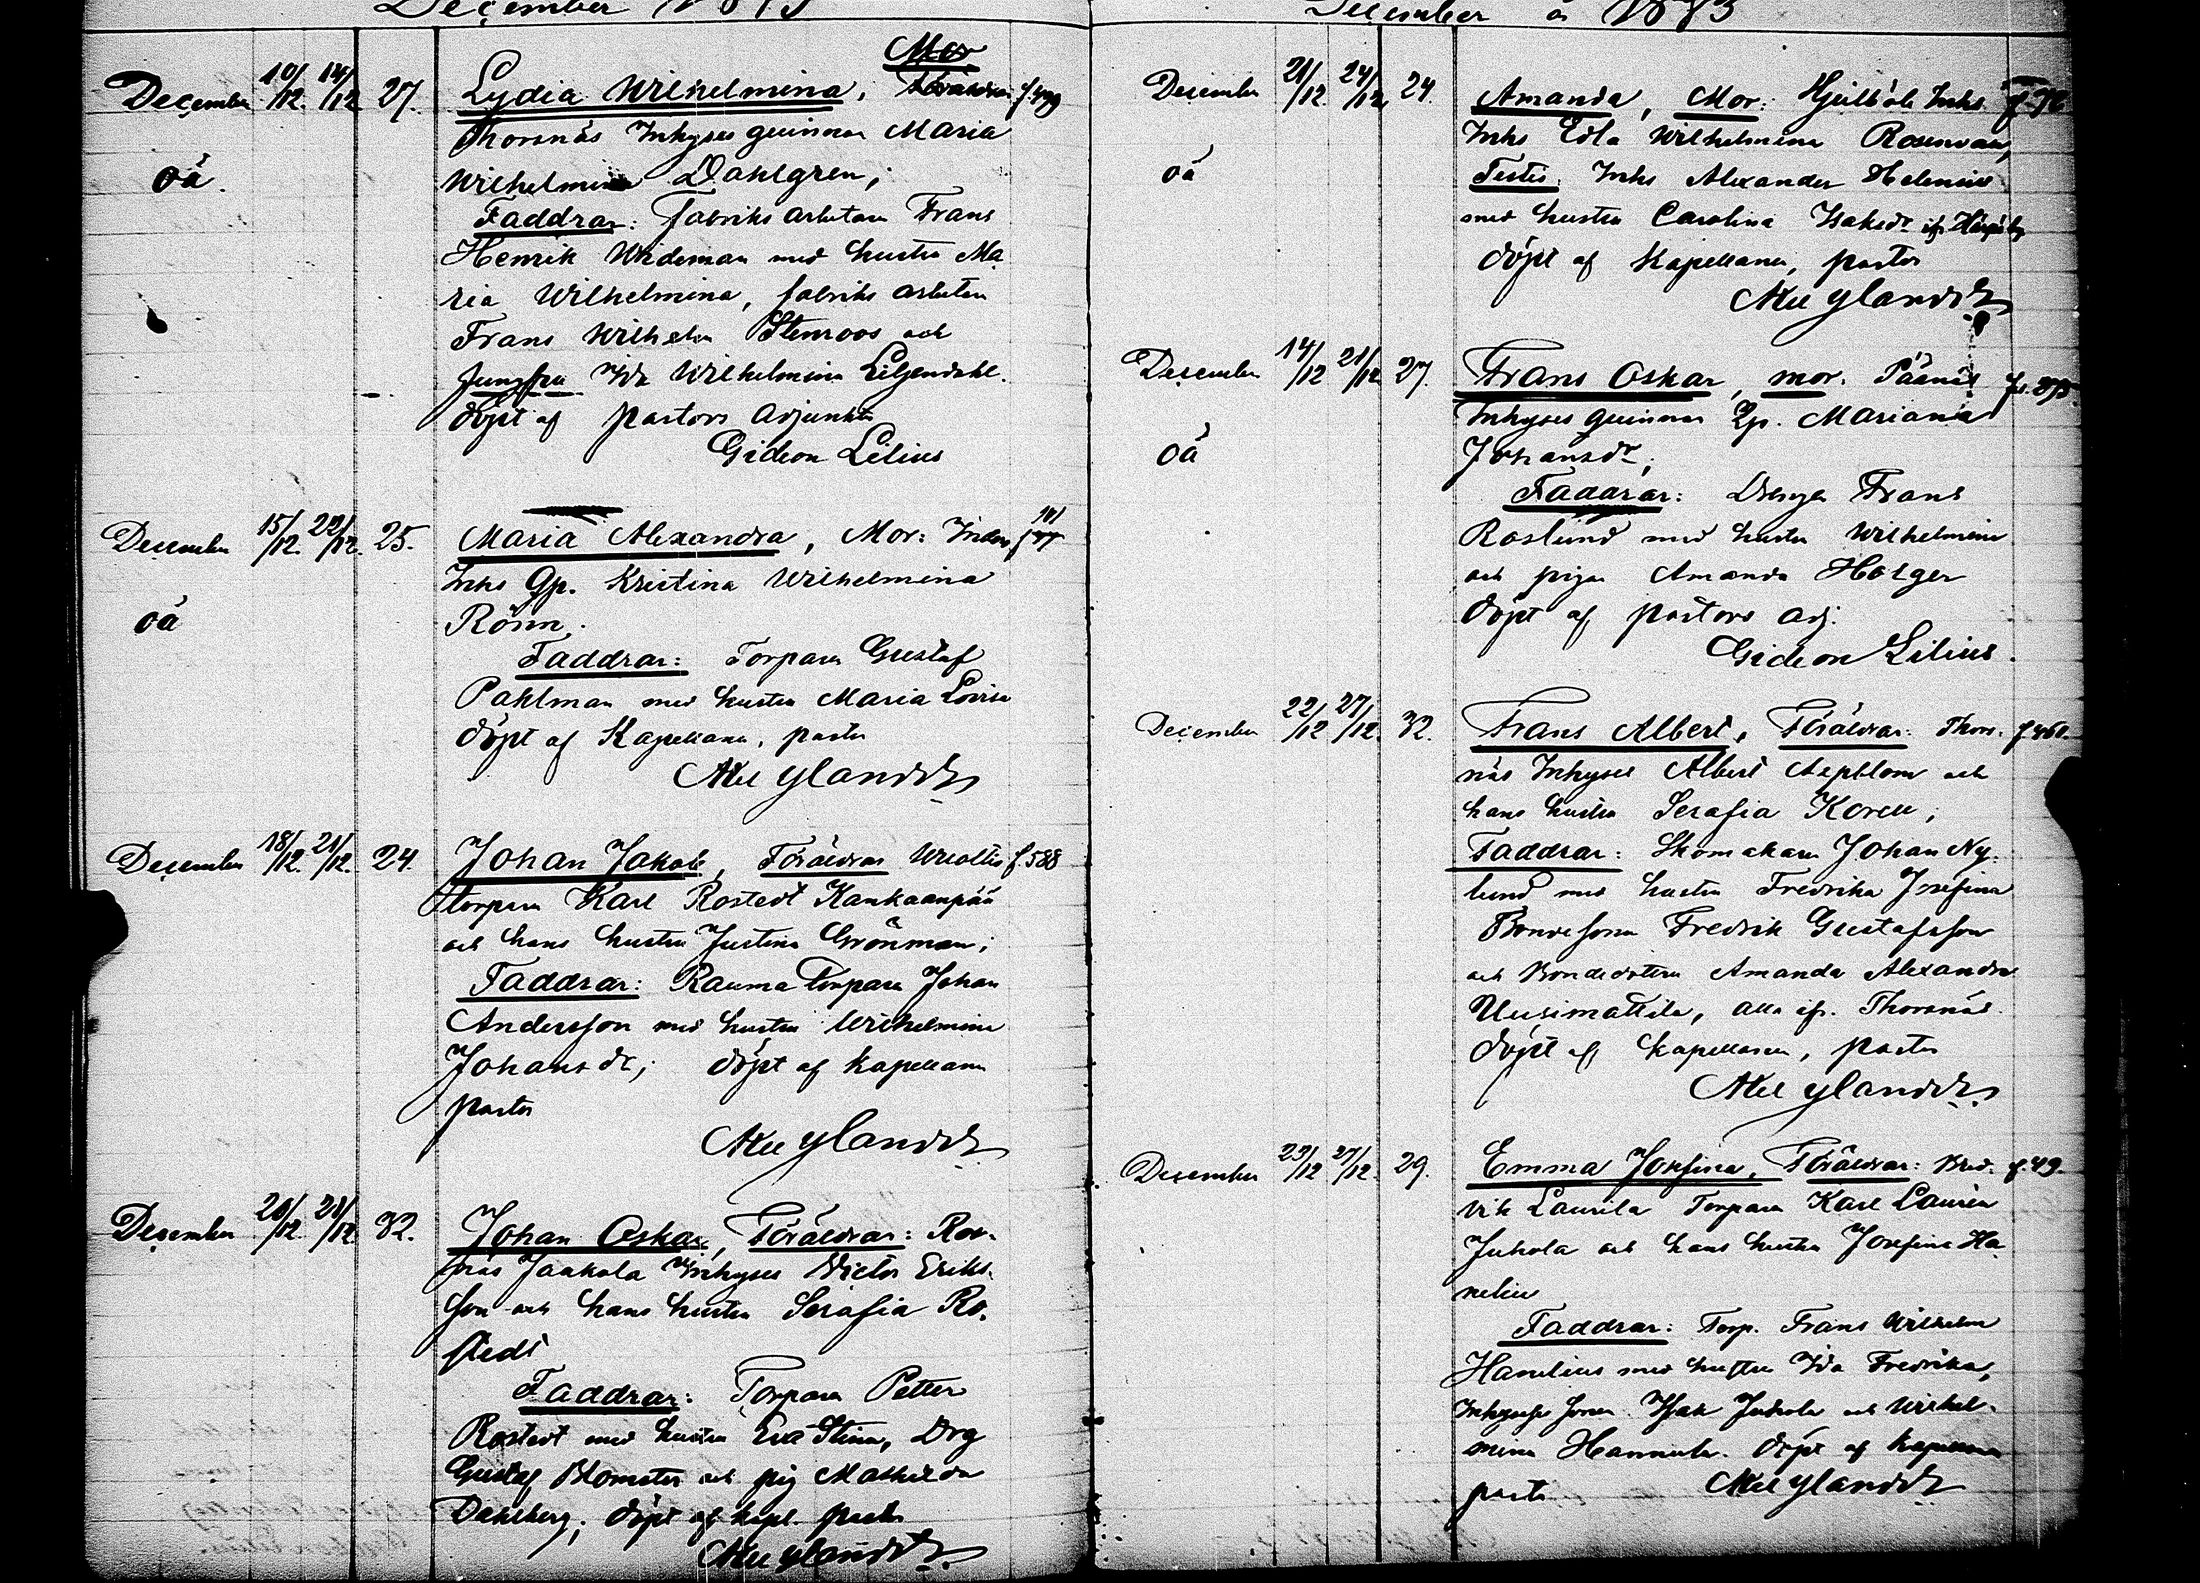 December
December 10/12 14/12 27. Lydia Wilhelmina, Mor
Thorsnäs Inhyses qvinnan Maria
oä. Wilhelmina Dahlgren;
Faddrar: fabriks arbetaren Frans
Henrik Wideman med hustru Ma
ria Wilhelmina, fabriks arbetaren
Frans Wilhelm Stenroos och
Jungfru Ida Wilhelmina Liljendahl.
döpt af pastors Adjunkten
Gideon Lilius
December 15/12 22/12. 25. Maria Alexandra, Mor:
Inhs Qp. Kristina Wilhelmina
oä Rosin.
Faddrar: Torparen Gustaf
Pahlman med hustru Maria Lovisa
döpt af Kapellanen, pastor
December 18/12. 21/12. 24. Johan Jakob, Föräldrar f. 588
torparen Karl Rostedt Kankaanpää
och hans hustru Justina Grönman;
Faddrar: Rauma Torparen Johan
Andersson med hustru Wilhelmina
Johansdr; döpt af kapellanen
pastor
December 20/12. 21/12 32. Johan Oskar, Föräldrar: Ros-
näs Jaakola Inhyses Victor Eriks-
son och hans hustru Serafia Ro-
stedt
Faddrar: Torparen Petter
Rostedt med hustru Eva Stina, Drg
Gustaf Blomster och pig Mathilda
Dahlberg; döpt af kapl. pastor
December å 1883
December 21/12 24/12. 24. Amanda, Mor: Inhs
Inhs Edla Wilhelmina
oä Testes: Inhs Alexander Helenius
med hustru Carolina Isaksdr
döpt af Kapellanen, pastor
December 14/12 21/12 27. Frans Oskar, mor.
Inhyses qvinnan Qp. Mariana
oä Johansdr;
Faddrar: Drengen Frans
Roslund med hustru Wilhelmina
och pigan Amanda Holger
döpt af pastors adj.
Gideon Lilius.
December 22/12 27/12. 32. Frans Albert, Föräldrar: Thors-
näs Inhyses Albert Aspblom och
hans hustru Serafia Korell;
Faddrar: Skomakaren Johan Ny-
lund med hustru Fredrika Josefina
Bondesonen Fredrik Gustafsson
och Bondedottern Amanda Alexandra
Uusimattila, alla ifr. Thorsnäs.
döpt af kapellanen, pastor
December 23/12 27/12. 29. Emma Josefina, Föräldrar: Bred- f. 49.
vik Laurila Torparen Karl Laurén
Juhola och hans hustru Josefina Ha
nelius
Faddrar: Torp. Frans Wilhelm
Hanelius med hustru Ida Fredrika,
Juhola och Wilhel-
mina döpt af kapellanen
pastor